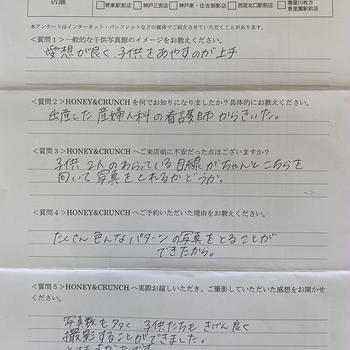 店舗
□堺東駅前店 □神戸三宮店 □神戸東・住吉御影店 □西宮北口駅前店
本アンケートはインターネット・パンフレットなどの媒体でご紹介させていただくことがあります。
＜質問１＞一般的な子供写真館のイメージをお教えください。
愛想が良く、子供をあやすのが上手
＜質問２＞HONEY&CRUNCH を何でお知りになりましたか？具体的にお教えください。
出産した産婦人科の看護師からきいた。
＜質問３＞HONEY&CRUNCH へご来店前に不安だった点はございますか？
子供２人のわらっている目線がちゃんとこちらを
向いて写真をとれるかどうか。
＜質問４＞HONEY&CRUNCH へご予約いただいた理由をお教えください。
たくさん色んなパターンの写真をとることが
できたから。
＜質問５＞HONEY&CRUNCH へ実際お越しいただき、ご撮影していただいた感想をお聞かせ
ください。
写真数も多く 子供たちも きげん良く
撮影することができました。
とてもよかったです